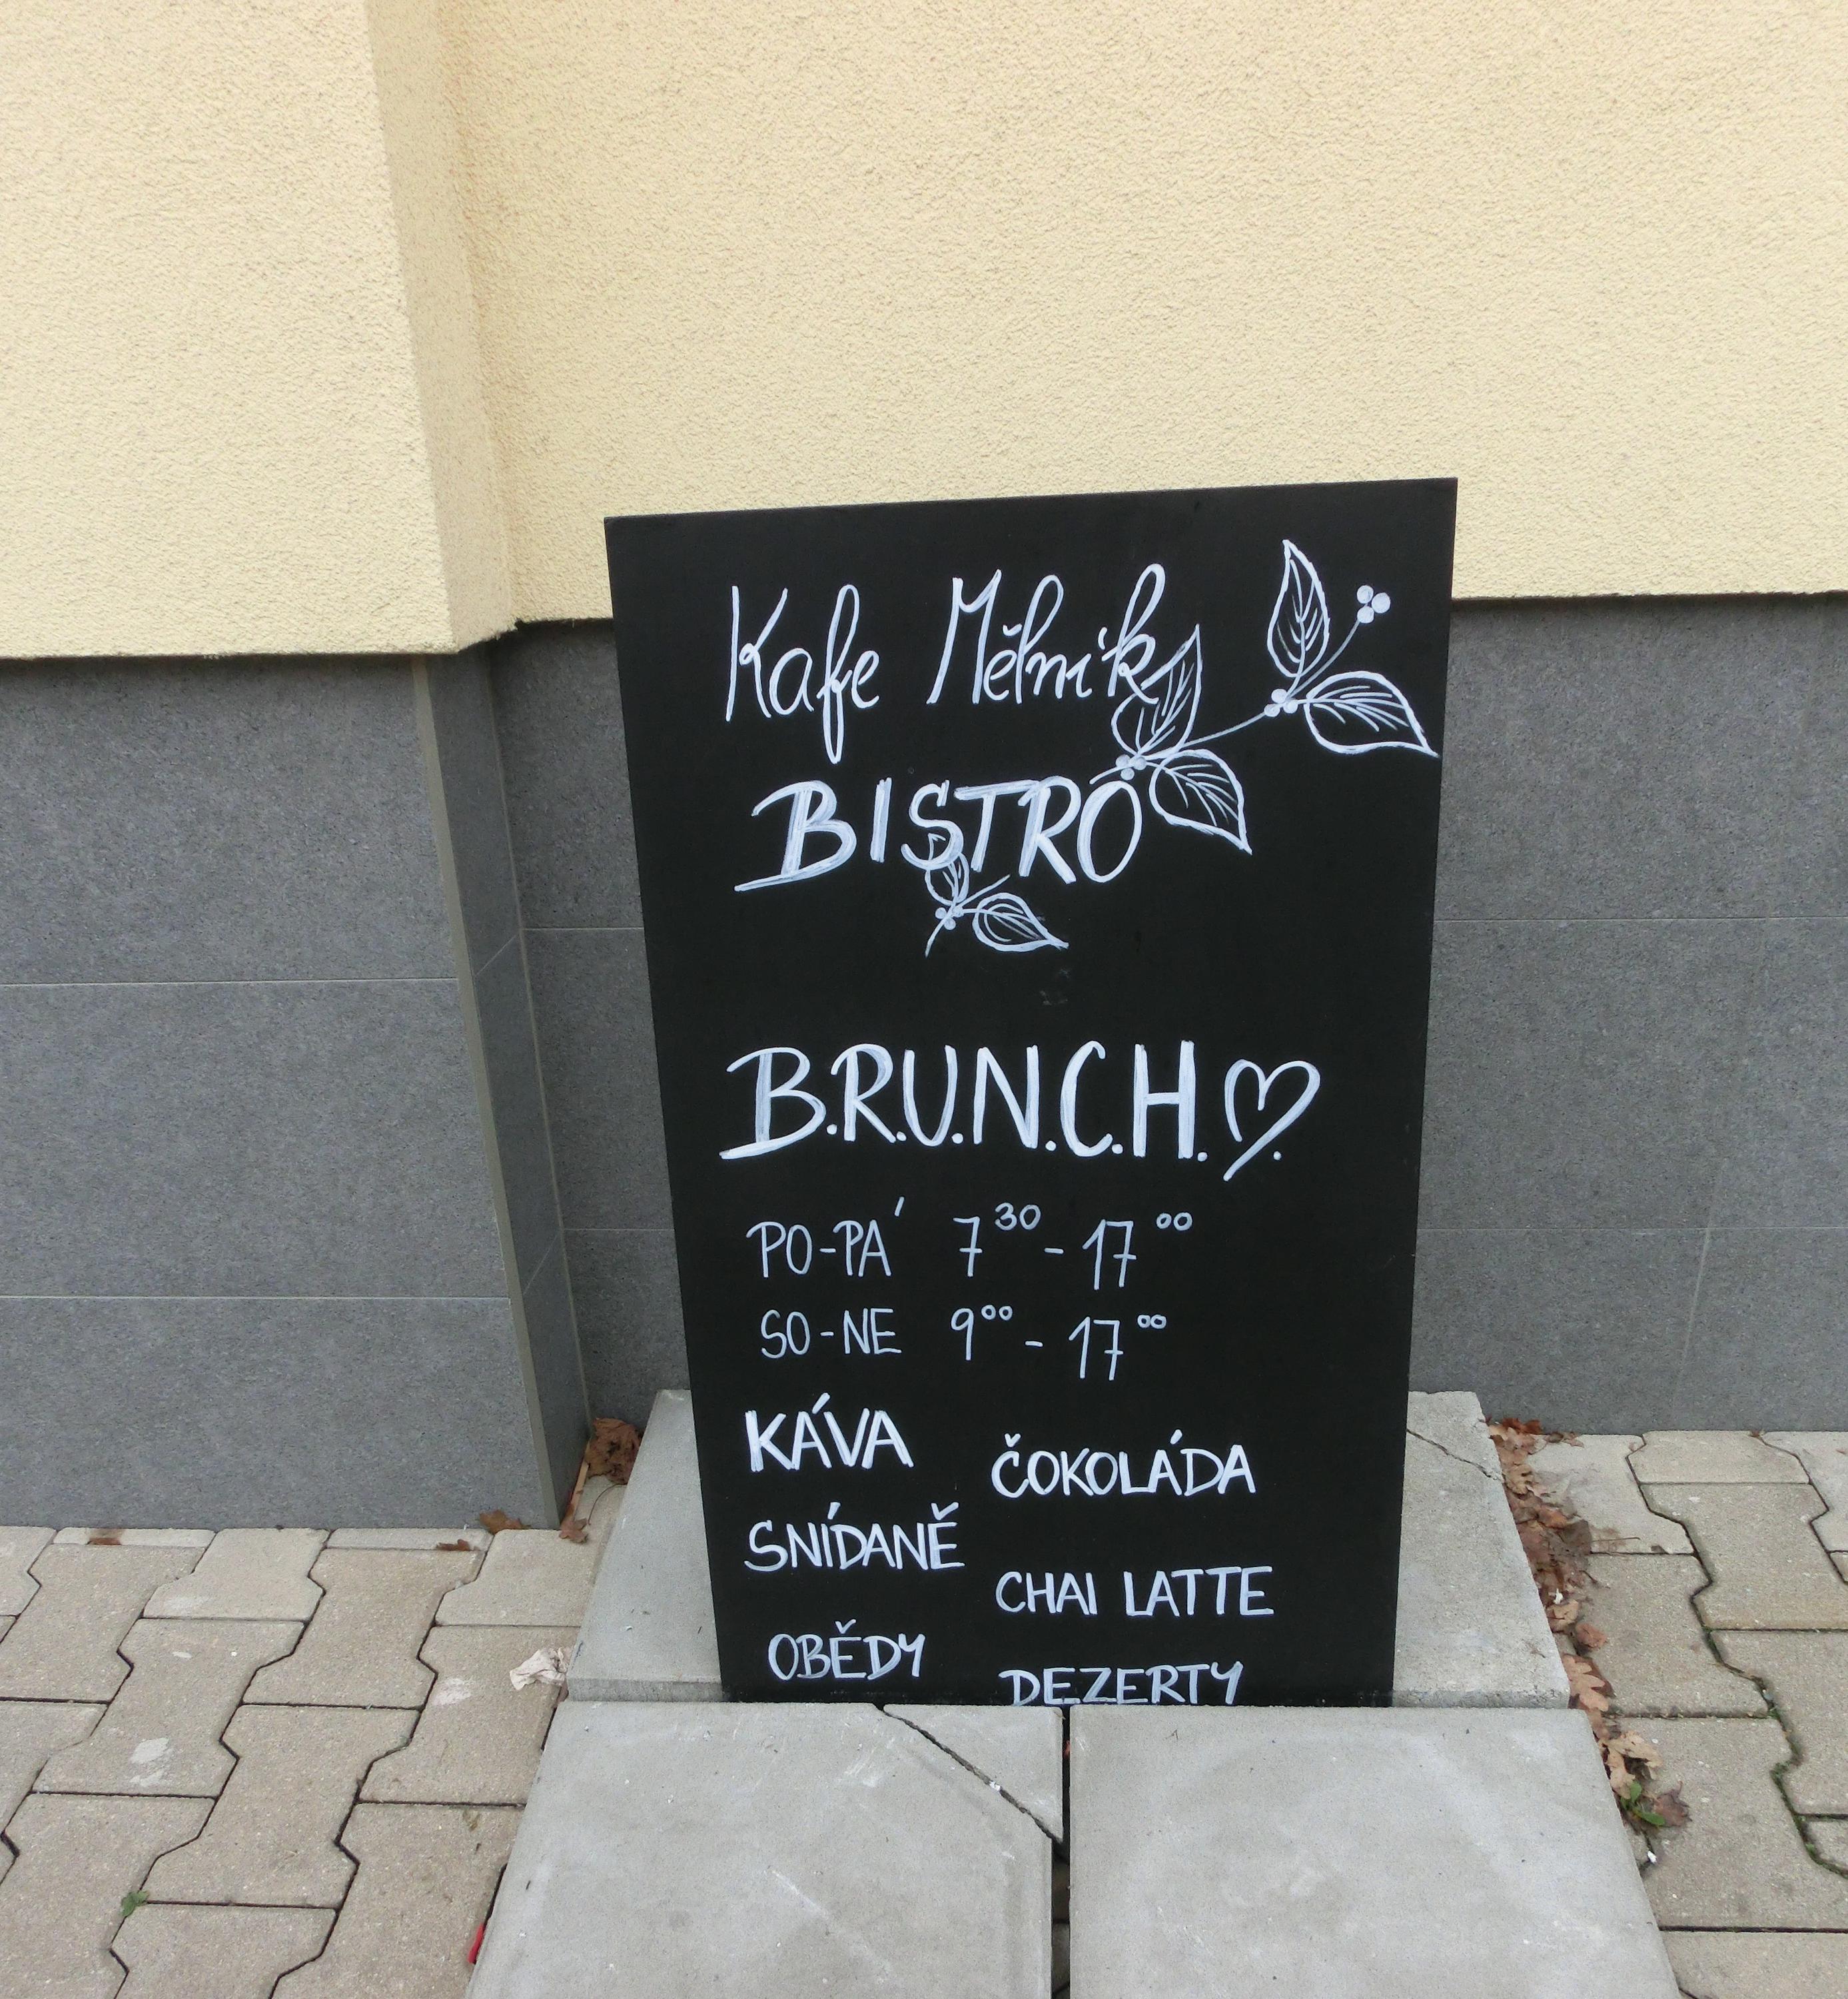 Kafe Mělník
BISTRO
B.R.U.N.C.H.♡.
PO-PÁ 7³⁰ - 17⁰⁰
SO-NE 9⁰⁰ - 17⁰⁰
KÁVA
SNÍDANĚ
OBĚDY
ČOKOLÁDA
CHAI LATTE
DEZERTY